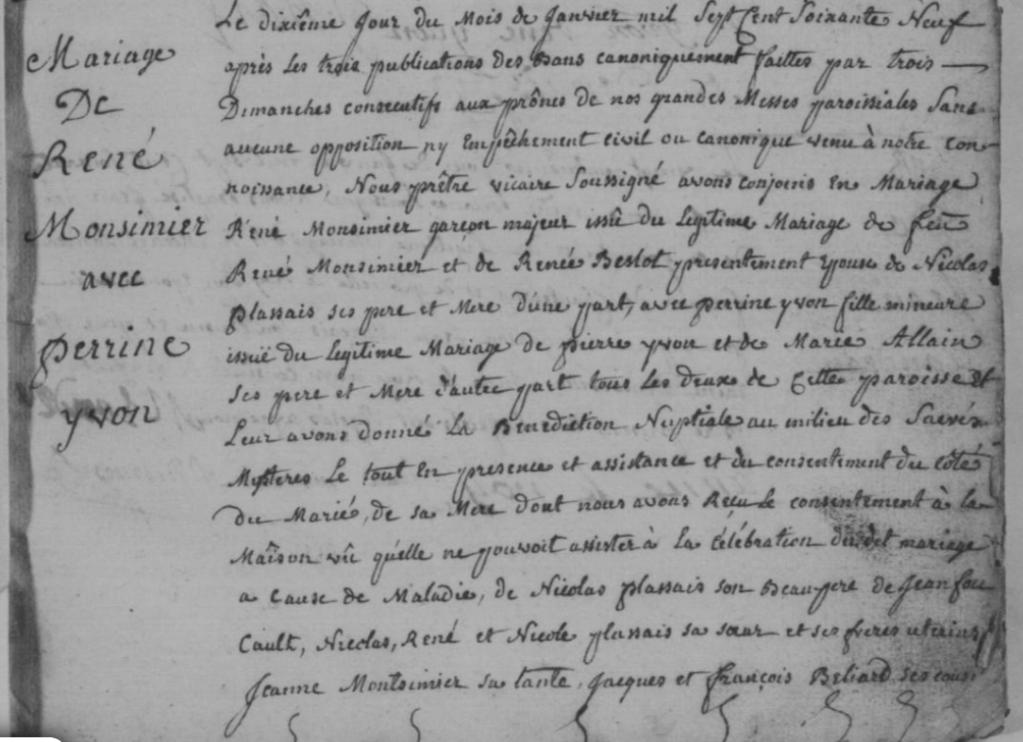 Mariage
De
René
Monsimier
avec
perrine
yvon
Le dixiême jour du Mois de Janvier mil Sept Cent Soixante Neuf
après Les trois publications des Bans canoniquement faittes par trois
Dimanches consecutifs aux prônes de nos grandes Messes paroissiales Sans
aucune opposition ny Empêchement civil ou canonique venu à notre con-
noissance, Nous prêtre vicaire Soussigné avons conjoins En Mariage
René Monsimier garçon majeur issü du Legitime Mariage de feu
René Monsimier et de Renée Beslot presentement Epouse de Nicolas
plassais ses pere et Mere d'une part, avec perrine yvon fille mineure
issuë du Legitime Mariage de pierre yvon et de Marie Allain
ses pere et Mere d'autre part tous Les deux de Cette paroisse et
Leur avons donné La Benediction Nuptiale au milieu des Sacrés
Mysteres Le tout En presence et assistance et du consentement du côté
du Marié, de sa Mere dont nous avons Reçu Le consentement à la
Maison vû qu'elle ne pouvoit assister à La célébration du dit mariage
a Cause de Maladie, de Nicolas plassais son Beaupere de Jean fou
Cault, Nicolas, René et Nicole plassais sa sœur et ses freres uterins
Jeanne Montsimier sa tante, Jacques et françois Beliard ses cousi